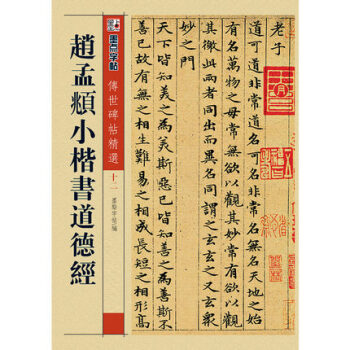 墨点字帖
傳世碑帖精選
十二
墨點字帖 編
趙孟頫小楷書道德經
老子
道可道非常道名可名非常名無名天地之始
有名萬物之母常無欲以觀其妙常有欲以觀
其徼此兩者同出而異名同謂之玄玄之又玄衆
妙之門
天下皆知美之為美斯惡已皆知善之為善斯不
善已故有無之相生難易之相成長短之相形高